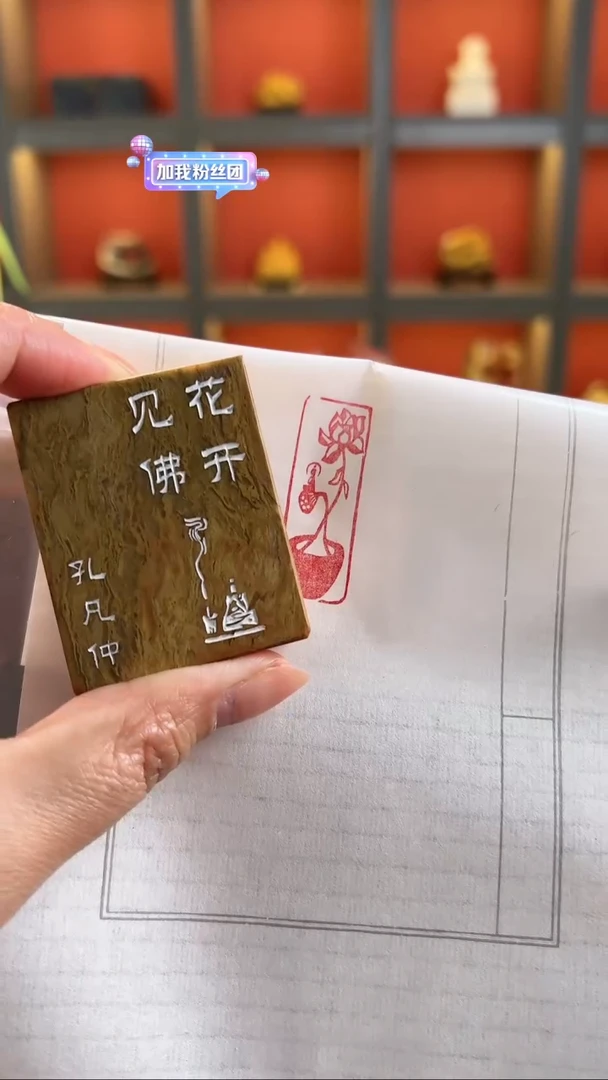 加我粉丝团
花开
见佛
孔凡仲